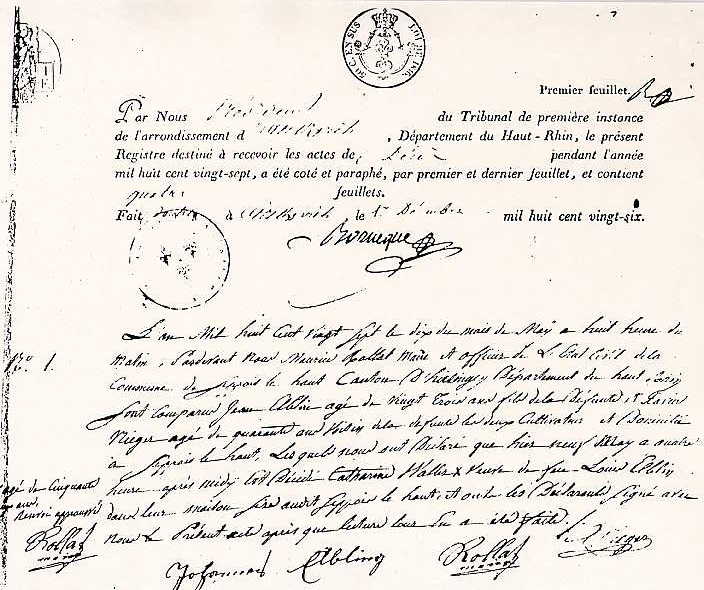 Premier feuillet.
Par Nous Président du Tribunal de première instance
de l'arrondissement d'Altkirch, Département du Haut-Rhin, le présent
Registre destiné à recevoir les actes de Décès pendant l'année
mil huit cent vingt-sept, a été coté et paraphé, par premier et dernier feuillet, et contient
quatre feuillets.
Fait double à Altkirch le 1er Décembre mil huit cent vingt-six.
L'an Mil huit Cent vingt Sept le dix du mois de May a huit heure du
No. 1. matin, Pardevant Nous Maurice Rollat Maire et officier de L'Etat Civil de la
Commune de Seppois le haut Canton D'hirsingue Département du haut Rhin
Sont Comparus Jean agé de vingt Trois ans fils de la Défunte et Xavier
agé de quarante ans Voisin de la defunte les deux Cultivateurs et Domicilié
à Seppois le haut, Lesquels nous ont Déclaré que hier neuf May a quatre
heure après midy Est Décédé Catharine Walter veuve de feu Louis
dans leur maison Sise audit Seppois le haut, et ont les Déclarants Signé avec
nous le Présent acte après que lecture leur En a été faite.
agé de Cinquante
ans
Renvoi approuvé
Rollat
maire
Johannes Elbling
Rollat
maire